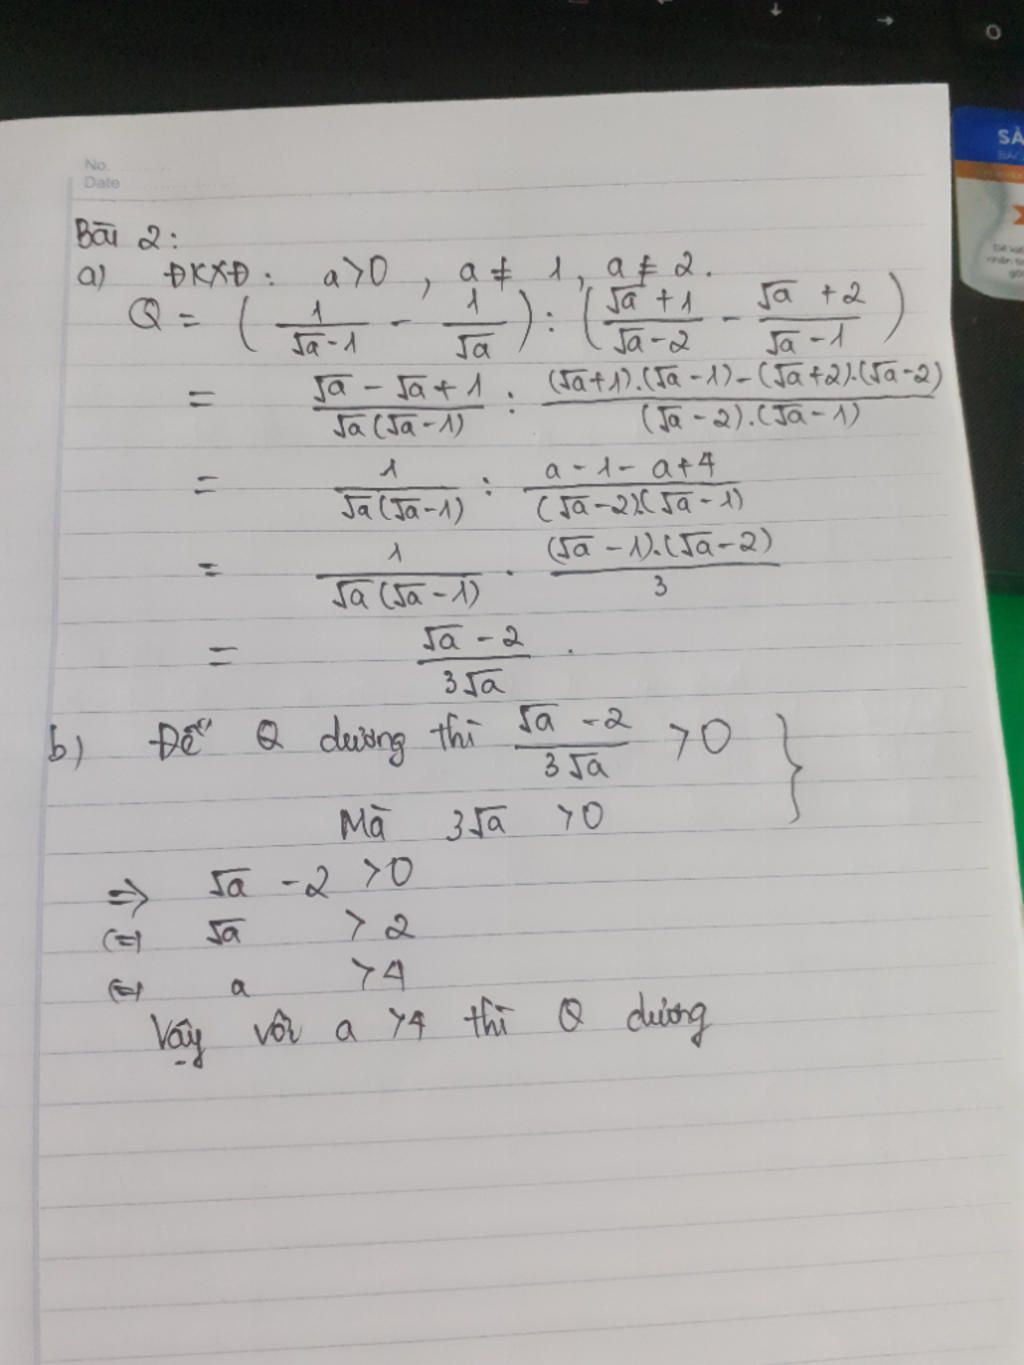 No.
Date
Bài 2:
a) ĐKXĐ: a>0, a ≠ 1, a ≠ 2.
Q = (1/(√a-1) - 1/√a) : ((√a+1)/(√a-2) - (√a+2)/(√a-1))
= (√a - √a + 1)/(√a(√a-1)) : ((√a+1).(√a-1)-(√a+2).(√a-2))/((√a-2).(√a-1))
= 1/(√a(√a-1)) : (a-1-a+4)/((√a-2)(√a-1))
= 1/(√a(√a-1)) . ((√a-1).(√a-2))/3
= (√a-2)/(3√a).
b) Để Q dương thì (√a-2)/(3√a) >0 }
Mà 3√a >0
=> √a - 2 >0
(=) √a > 2
(=) a >4
Vậy với a >4 thì Q dương
SẢ